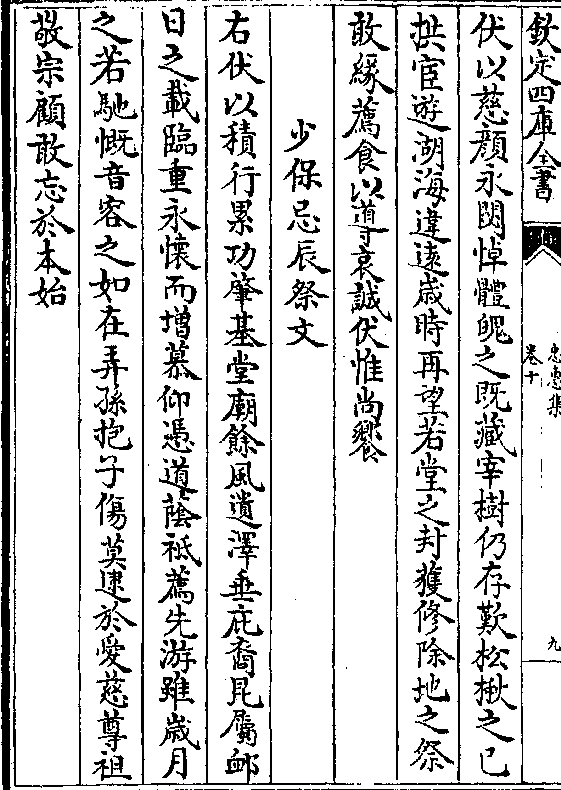 欽定四庫全書
忠惠集
卷十
九
伏以慈顔永閟悼體魄之既藏宰樹仍存歎松楸之已
拱宦遊湖海違遠歲時再望若堂之封獲修除地之祭
敢緣薦食以導哀誠伏惟尚饗
少保忌辰祭文
右伏以積行累功肇基堂廟餘風遺澤垂庇裔昆屬卹
日之載臨重永懷而增慕仰憑道蔭祗薦先游雖歲月
之若馳慨音容之如在弄孫抱子傷莫逮於愛慈尊祖
敬宗顧敢忘於本始